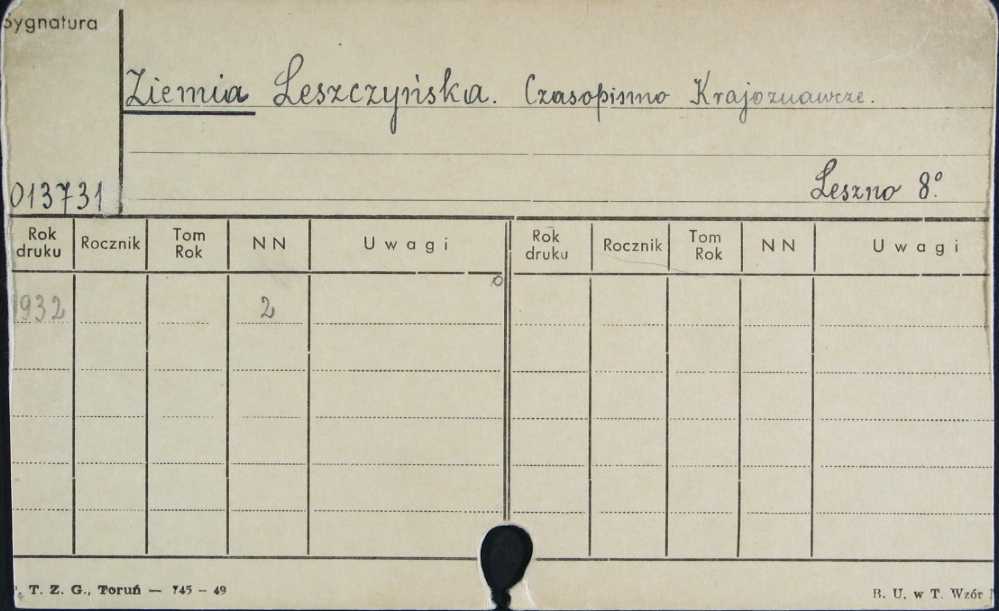 Sygnatura
Ziemia Leszczyńska. Czasopismo Krajoznawcze.
Leszno 8°.
013731
Rok druku Rocznik Tom Rok NN Uwagi Rok druku Rocznik Tom Rok NN Uwagi
932 2
T. Z. G., Toruń — 745 – 49
B. U. w T. Wzór